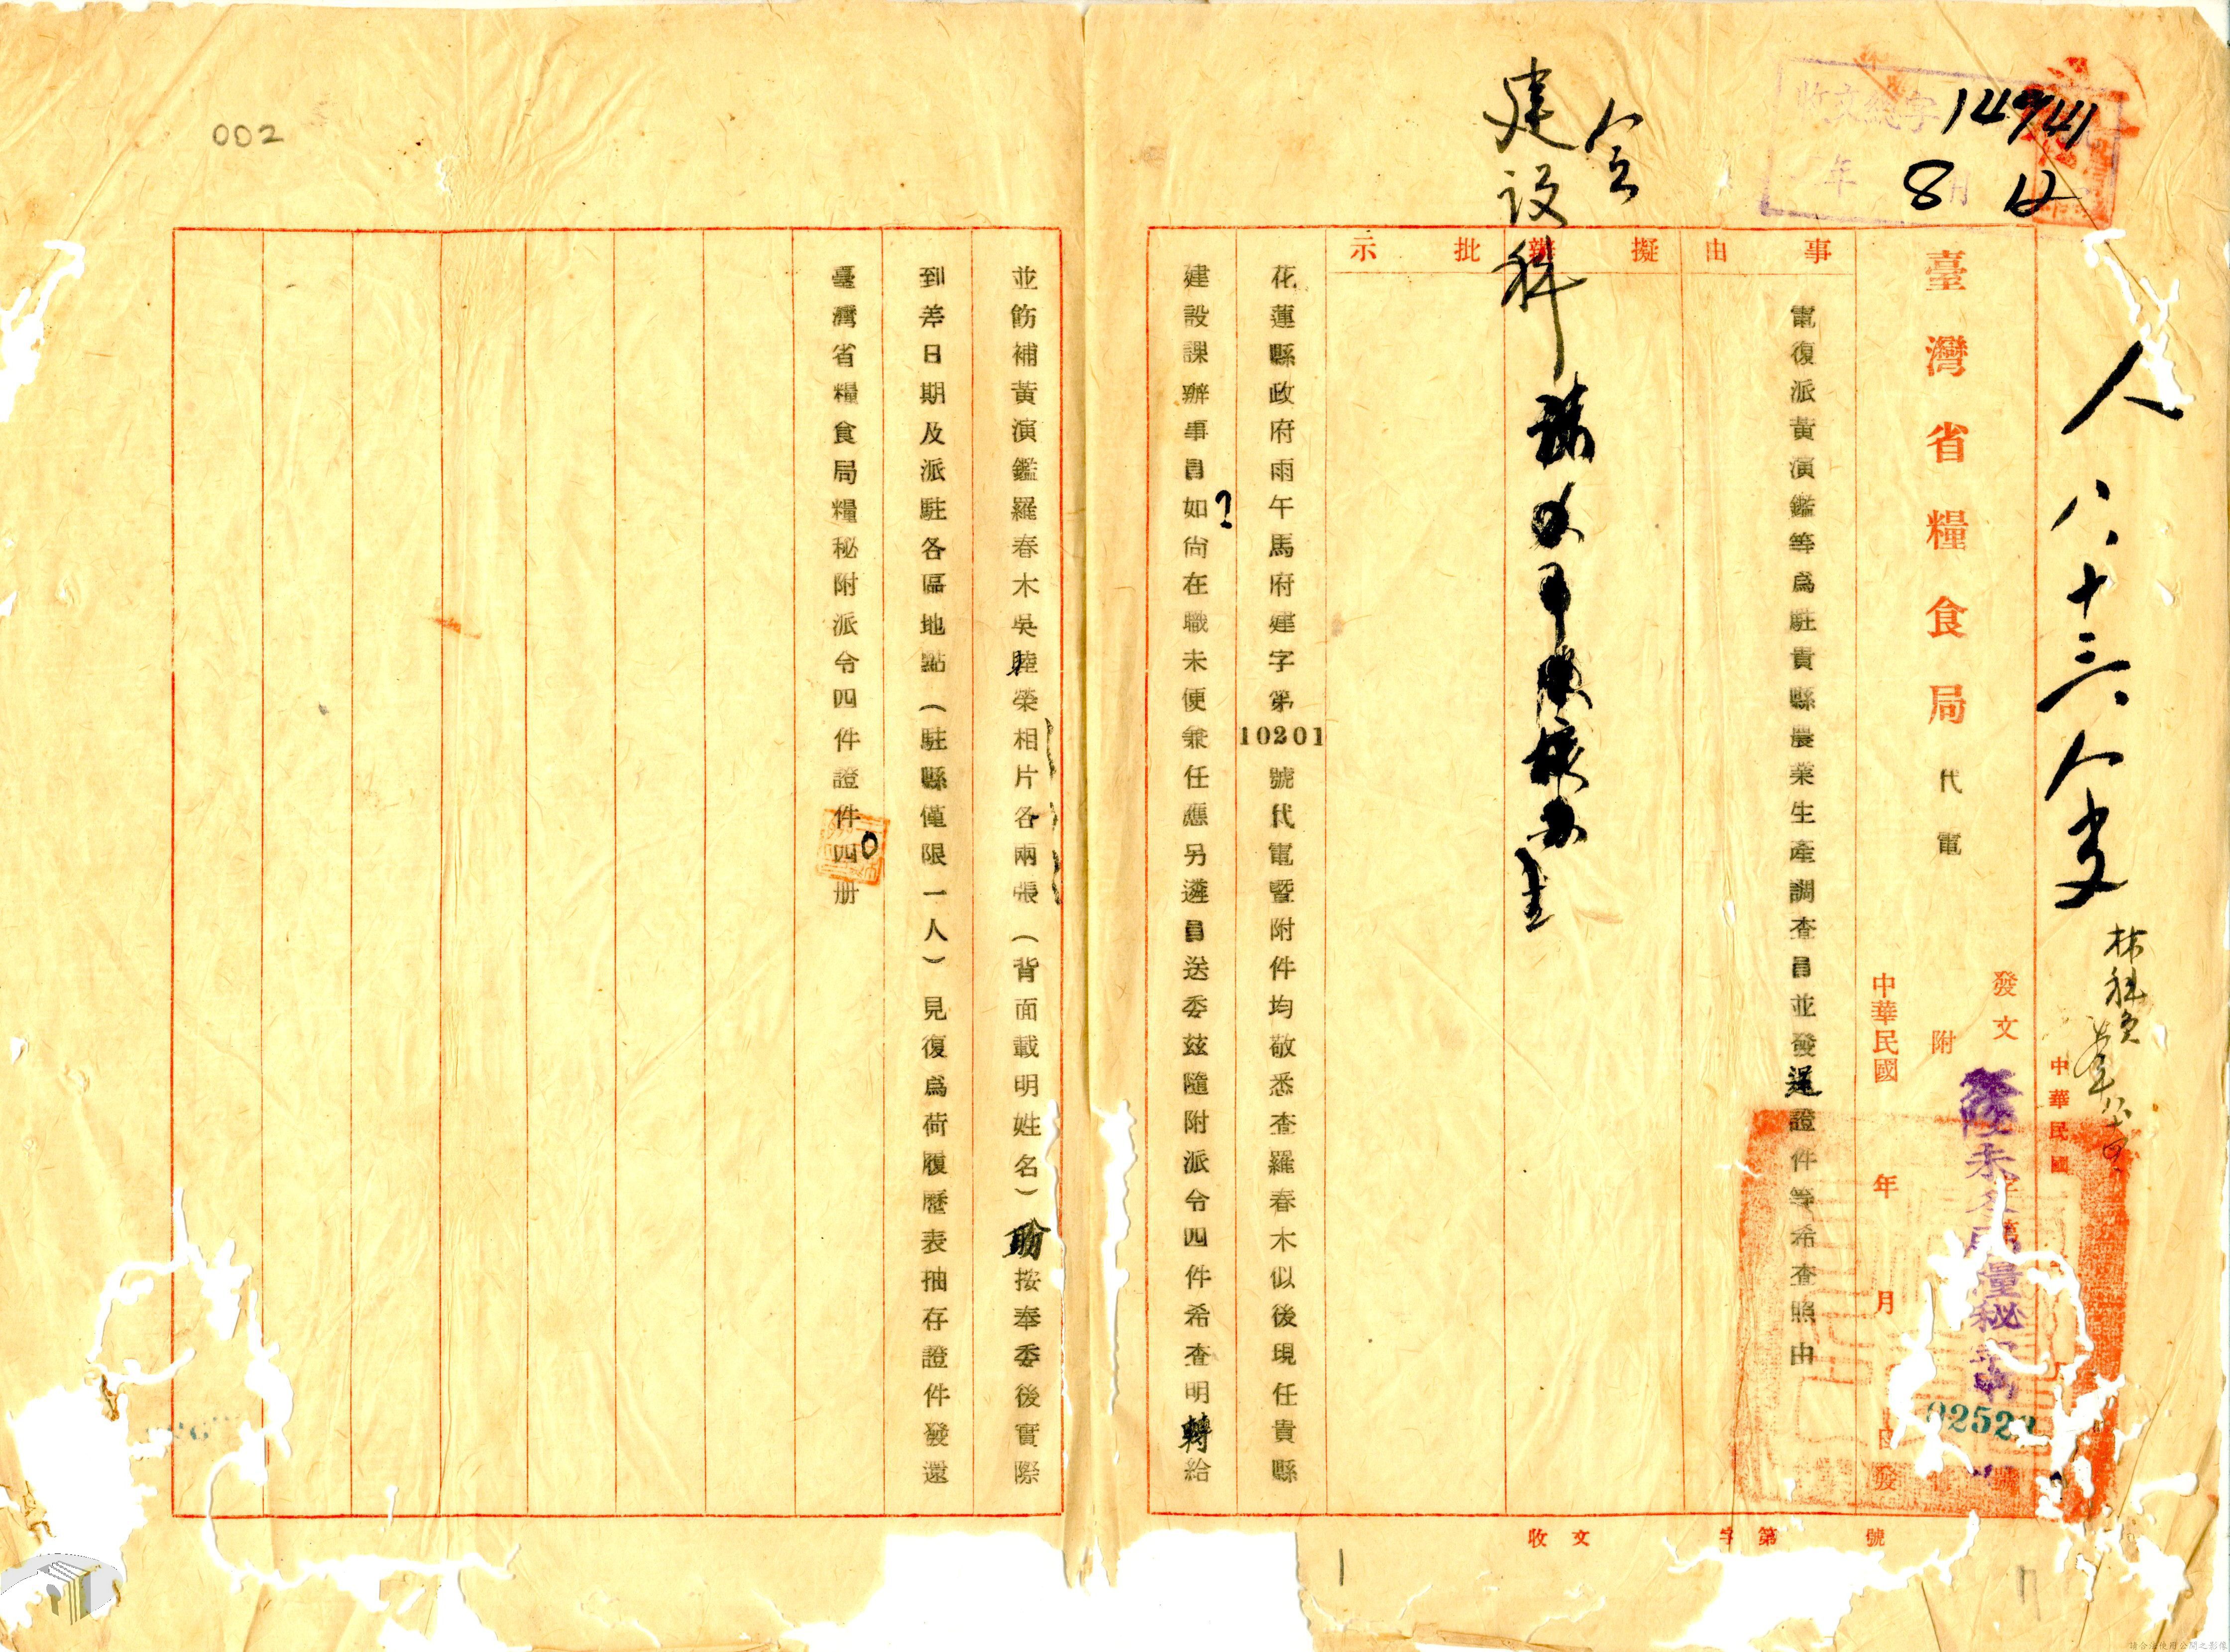 收文總字
14741
年 8 月 12
人
八、十三、
臺灣省糧食局 代電
發文
附
中華民國
中華民國 年 月 日發
糧秘
號
事由
擬辦
批示
會
建設科
電復派黃演鑑等為駐貴縣農業生產調查員並發還證件等希查照由
花蓮縣政府雨午馬府建字第10201號代電暨附件均敬悉查羅春木似後現任貴縣
建設課辦事員如尚在職未便兼任應另遴員送委茲隨附派令四件希查明轉給
並飭補黃演鑑羅春木吳陸榮相片各兩張(背面載明姓名)按奉委後實際
到差日期及派駐各區地點(駐縣僅限一人)見復為荷履歷表抽存證件發還
臺灣省糧食局糧秘附派令四件證件四册
收文 字第 號
002
請合法使用公開之影像